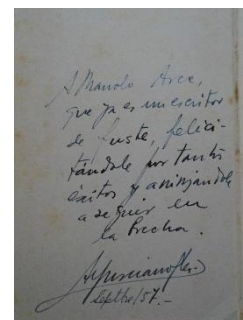 A Manolo Arce,
que ya es un escritor
de fuste, felici-
tándole por tantos
éxitos y animándole
a seguir en
la brecha.
Septbre/57.-